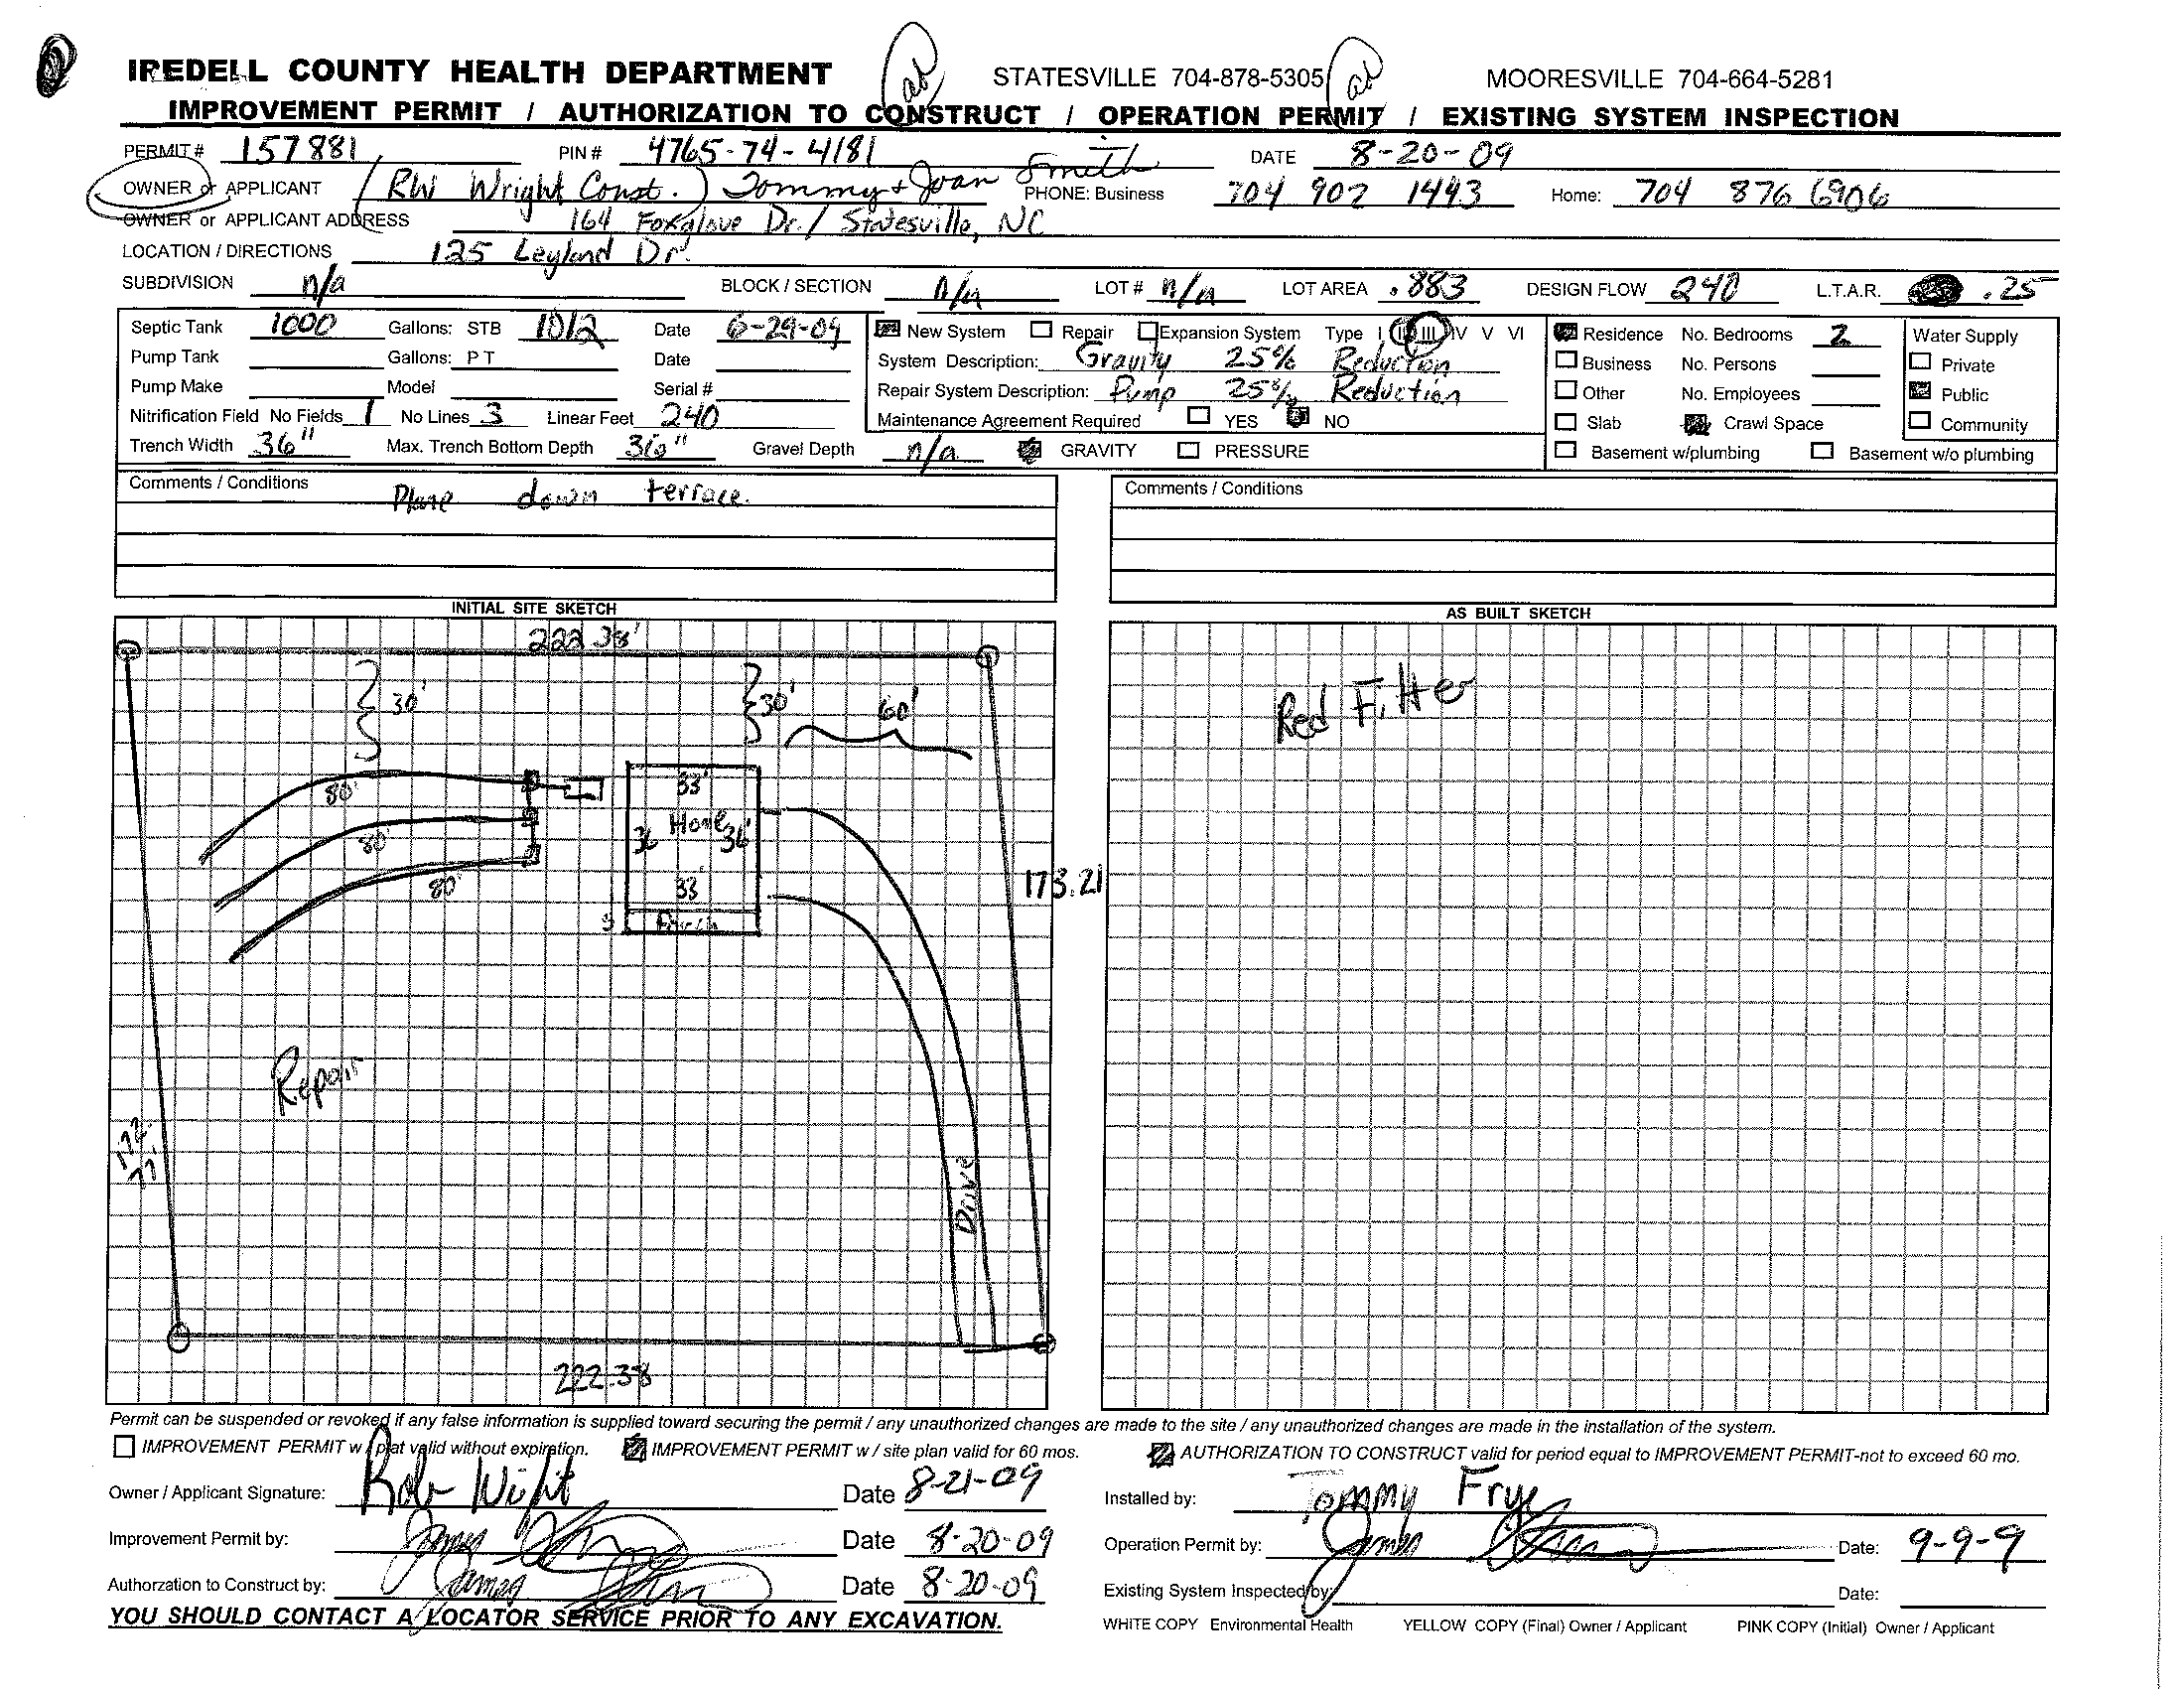 IREDELL COUNTY HEALTH DEPARTMENT STATESVILLE 704-878-5305 MOORESVILLE 704-664-5281
IMPROVEMENT PERMIT / AUTHORIZATION TO CONSTRUCT / OPERATION PERMIT / EXISTING SYSTEM INSPECTION
PERMIT # 157881 PIN # 4765-74-4181 DATE 8-20-09
OWNER or APPLICANT (RW Wright Const.) Tommy + Joan Smith PHONE: Business 704 902 1443 Home: 704 876 6906
OWNER or APPLICANT ADDRESS 164 Foxglove Dr. / Statesville, NC
LOCATION / DIRECTIONS 125 Leyland Dr.
SUBDIVISION n/a BLOCK / SECTION n/a LOT # n/a LOT AREA .883 DESIGN FLOW 240 L.T.A.R. .25
Septic Tank 1000 Gallons: STB 1012 Date 6-29-09 New System Repair Expansion System Type I II III IV V VI Residence No. Bedrooms 2 Water Supply
Pump Tank Gallons: P T Date System Description: Gravity 25% Reduction Business No. Persons Private
Pump Make Model Serial # Repair System Description: Pump 25% Reduction Other No. Employees Public
Nitrification Field No Fields 1 No Lines 3 Linear Feet 240 Maintenance Agreement Required YES NO Slab Crawl Space Community
Trench Width 36" Max. Trench Bottom Depth 36" Gravel Depth n/a GRAVITY PRESSURE Basement w/plumbing Basement w/o plumbing
Comments / Conditions down terrace. Comments / Conditions
INITIAL SITE SKETCH AS BUILT SKETCH
222.38'
30' 30' 60' Red Filter
80' 33'
80' 36 36'
80' 33' 173.21
5 Porch
Repair
172.77
Drive
222.38
Permit can be suspended or revoked if any false information is supplied toward securing the permit / any unauthorized changes are made to the site / any unauthorized changes are made in the installation of the system.
IMPROVEMENT PERMIT w / plat valid without expiration. IMPROVEMENT PERMIT w / site plan valid for 60 mos. AUTHORIZATION TO CONSTRUCT valid for period equal to IMPROVEMENT PERMIT-not to exceed 60 mo.
Owner / Applicant Signature: Date 8-21-09 Installed by: Tommy Frye
Improvement Permit by: James Date 8-20-09 Operation Permit by: James Date: 9-9-9
Authorzation to Construct by: James Date 8-20-09 Existing System Inspected by: Date:
YOU SHOULD CONTACT A LOCATOR SERVICE PRIOR TO ANY EXCAVATION. WHITE COPY Environmental Health YELLOW COPY (Final) Owner / Applicant PINK COPY (Initial) Owner / Applicant